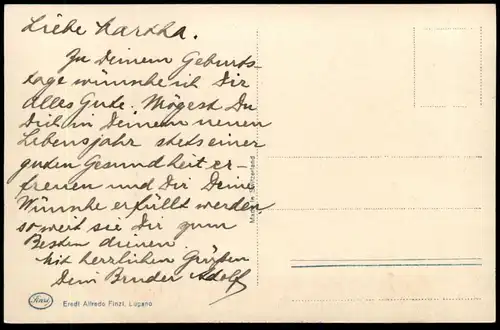 Liebe Martha.
Zu Deinem Geburts-
tage wünsche ich Dir
alles Gute. Mögest Du
Dich in Deinem neuen
Lebensjahr stets einer
guten Gesundheit er-
freuen und Dir Deine
Wünsche erfüllt werden
so weit sie Dir zum
Besten dienen.
Mit herzlichen Grüßen
Dein Bruder Adolf
Made in Switzerland
Eredi Alfredo Finzi, Lugano